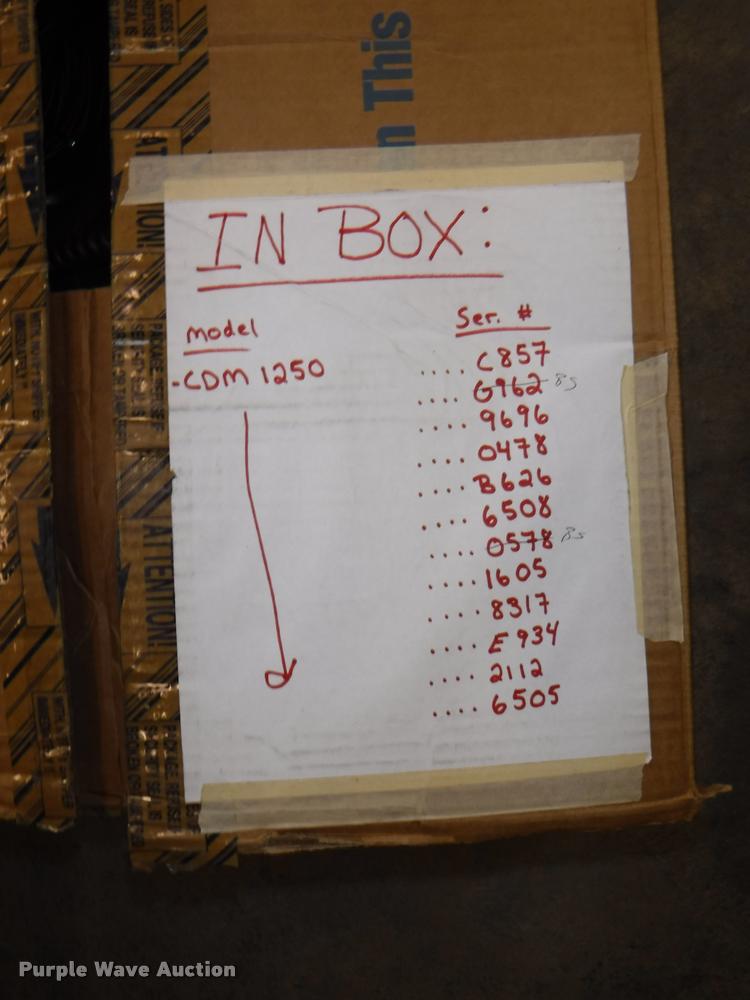 n This
IN BOX:
model Ser. #
-CDM 1250 .... C857
.... G962 BS
.... 9696
.... 0478
.... B626
.... 6508
.... 0578 BS
.... 1605
.... 8317
.... E934
.... 2112
.... 6505
ATTENTION!
Purple Wave Auction